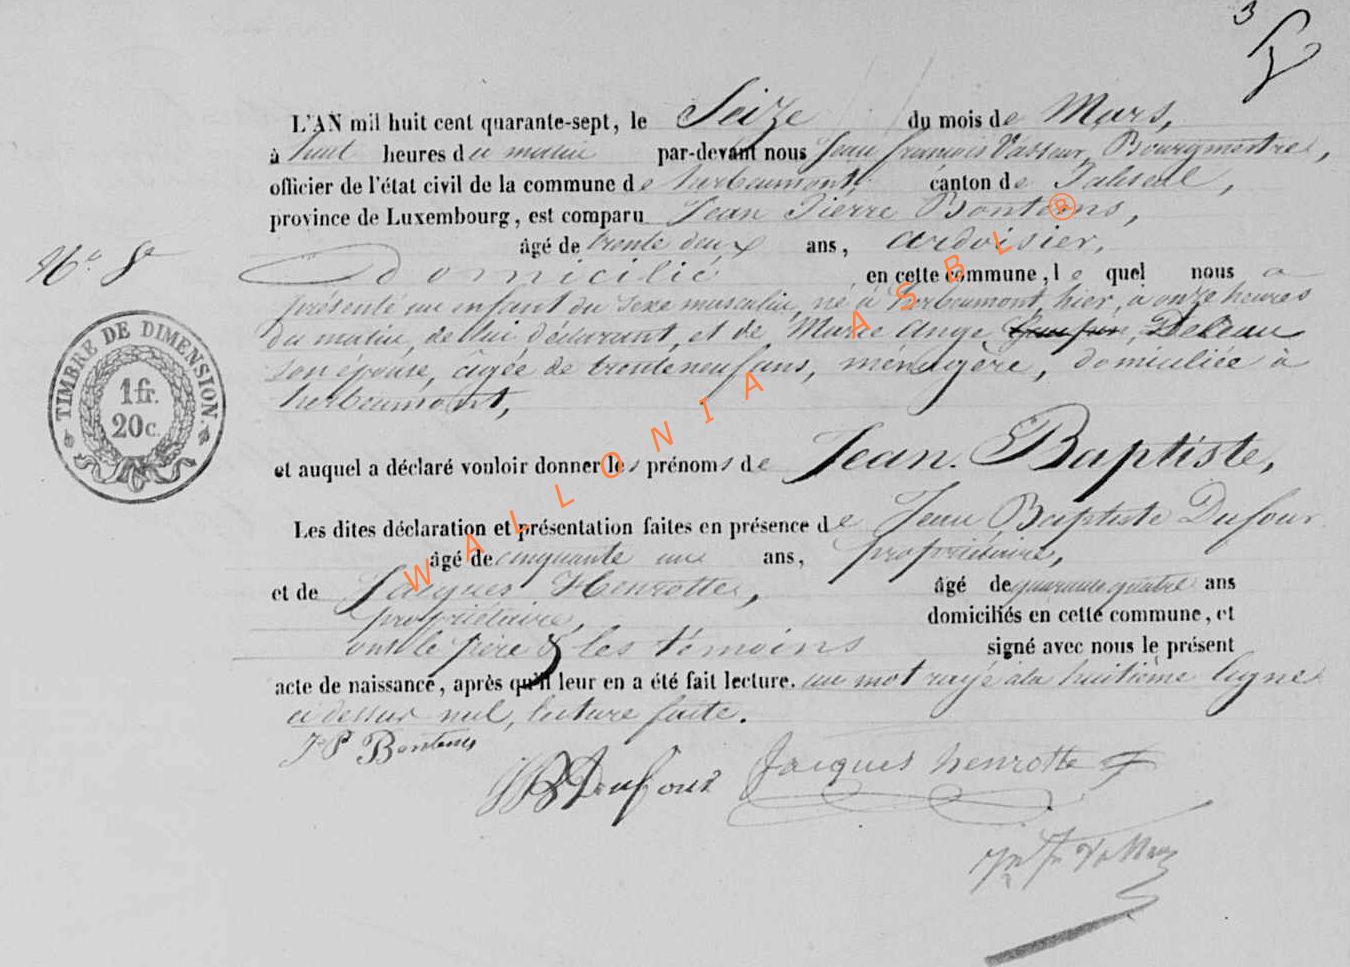 3
L'AN mil huit cent quarante-sept, le Seize du mois de Mars,
à huit heures du matin par-devant nous Jean françois Vasseur, Bourgmestre,
officier de l'état civil de la commune de herbeumont, canton de Paliseul,
province de Luxembourg, est comparu Jean Pierre Bontems,
âgé de trente deux ans, ardoisier,
N.o 8 domicilié en cette commune, lequel nous a
présenté un enfant du sexe masculin, né à herbeumont, hier, à onze heures
du matin, de lui déclarant, et de Marie Ange Deleau
son épouse, âgée de trente neuf ans, ménagère, domiciliée à
herbeumont,
TIMBRE DE DIMENSION
1 fr.
20 c.
et auquel a déclaré vouloir donner les prénoms de Jean Baptiste,
Les dites déclaration et présentation faites en présence de Jean Baptiste Dufour
âgé de cinquante un ans, propriétaire,
et de Jacques Henrotte, âgé de quarante quatre ans
propriétaire, domiciliés en cette commune, et
ont le père & les témoins signé avec nous le présent
acte de naissance, après qu'il leur en a été fait lecture. un mot rayé à la huitième ligne
ci dessus nul, lecture faite.
J P Bontems
JB Dufour Jacques henrotte
WALLONIA ASBL ®